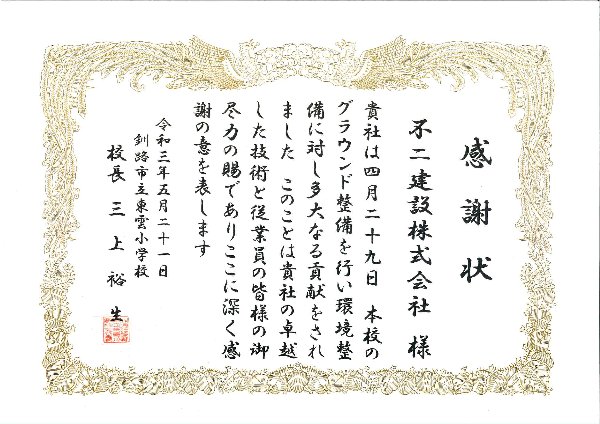 感謝状
不二建設株式会社 様
貴社は四月二十九日 本校の
グラウンド整備を行い環境整
備に対し多大なる貢献をされ
ました このことは貴社の卓越
した技術と従業員の皆様の御
尽力の賜でありここに深く感
謝の意を表します
令和三年五月二十一日
釧路市立東雲小学校
校長 三上裕生